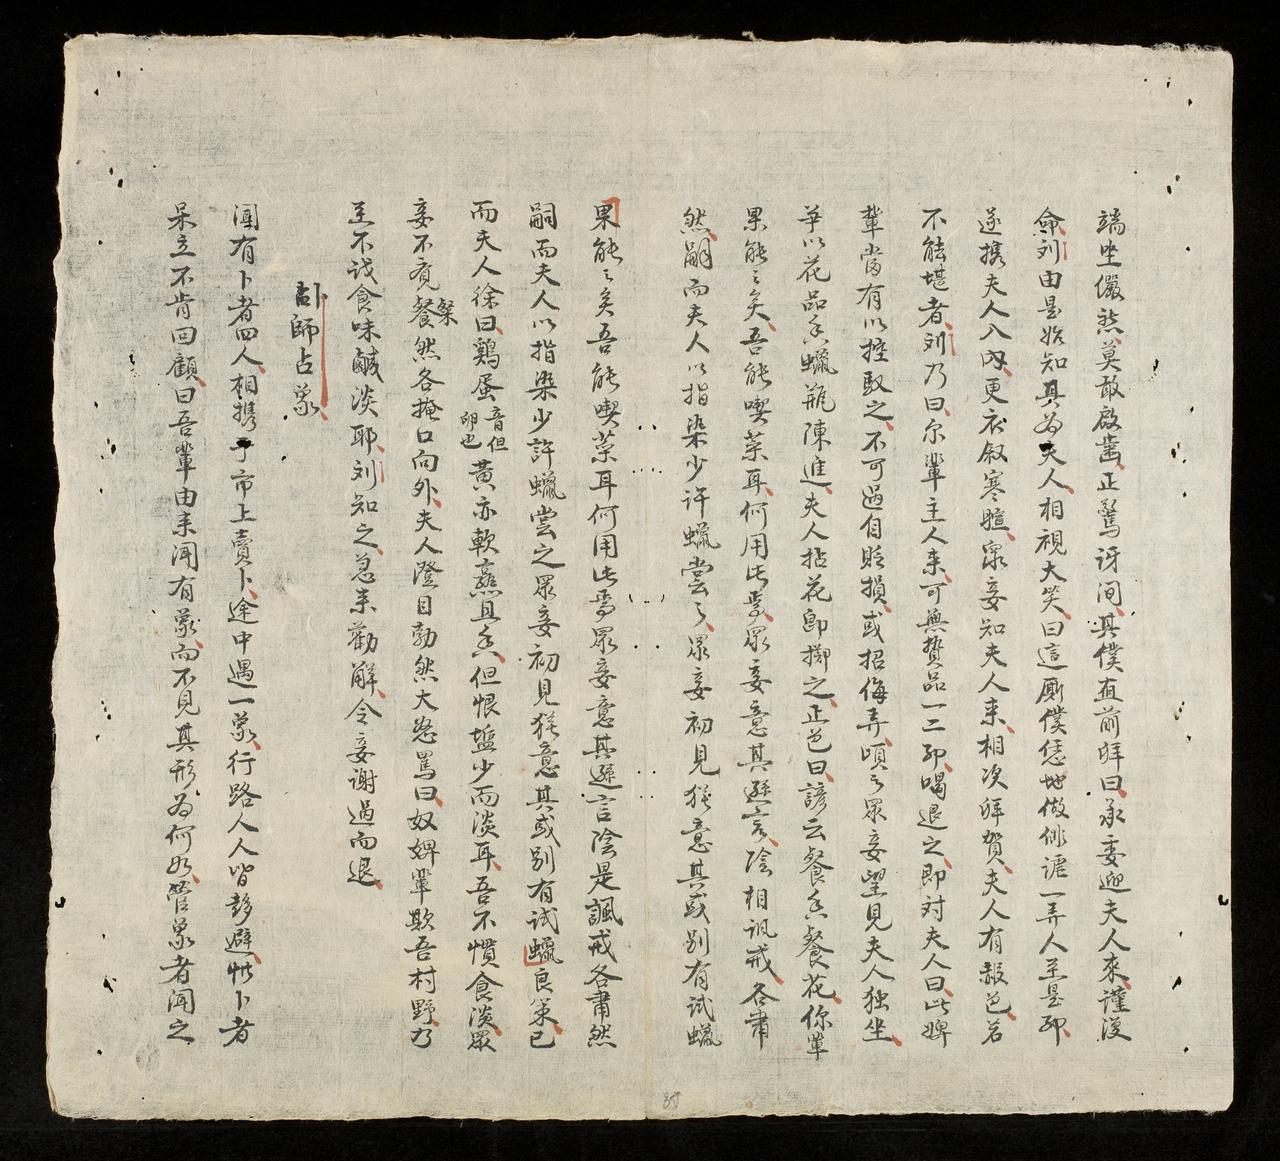 端坐儼然莫敢啟齒正驚訝间其僕直前拜曰承委迎夫人來謹復
命刘由是始知其为夫人相視大笑曰這厮僕恁地做俳謔一弄人至是耶
遂携夫人入内更衣叙寒暄眾妾知夫人来相次拜賀夫人有赧色若
不能堪者刘乃曰尔輩主人来可無贄品一二耶喝退之即对夫人曰此婢
輩當有以控馭之不可過自貶損或招侮弄頃之眾妾望見夫人独坐
争以花品香蠟瓶陳進夫人拈花即擲之正色曰諺云餐香餐花你輩
果能之矣吾能喫菜耳何用此焉眾妾意其遜言陰相訊戒各肅
然嗣而夫人以指染少許蠟嘗之眾妾初見疑意其或别有試蠟
果能之矣吾能喫菜耳何用此焉眾妾意其遜言陰是諷戒各肅然
嗣而夫人以指染少許蠟嘗之眾妾初見疑意其或别有試蠟良策已
而夫人徐曰鷄蛋音但卵也黃亦軟燕且香但恨塩少而淡耳吾不慣食淡眾
妾不覓餐粲然各掩口向外夫人瞪目勃然大怒罵曰奴婢輩欺吾村野乃
至不識食味鹹淡耶刘知之急来勸解令妾謝過而退
卦師占象
闻有卜者四人相携于市上賣卜途中遇一象行路人人皆趍避惟卜者
呆立不肯回顧曰吾輩由来闻有象而不見其形为何如管象者闻之
39